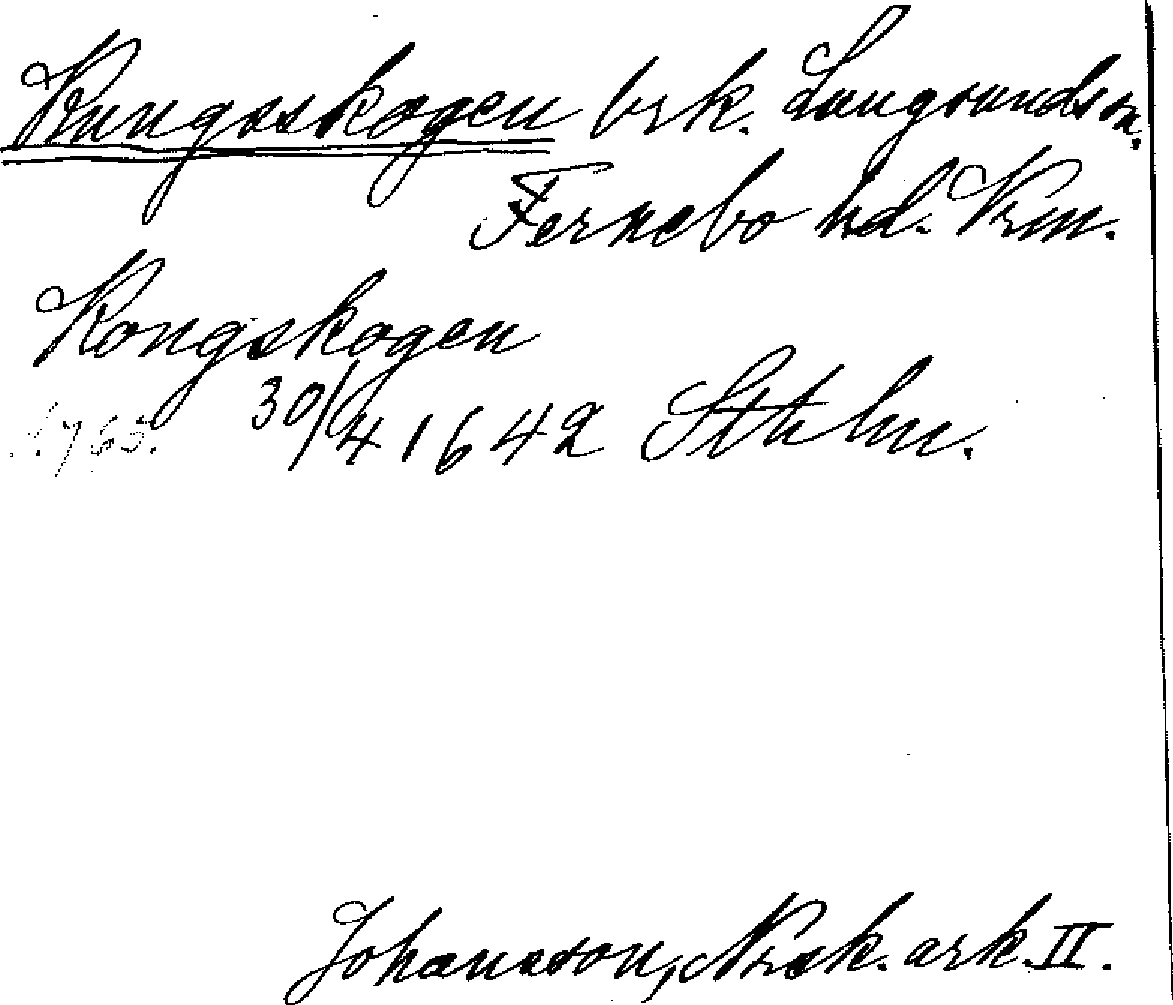 Kungsskogen brk. Lungsundsn.
Fernebo hd. Vrm.
Kongskogen
1765. 30/4 1642 Sthlm.
Johansson, Norsk. ark. II.